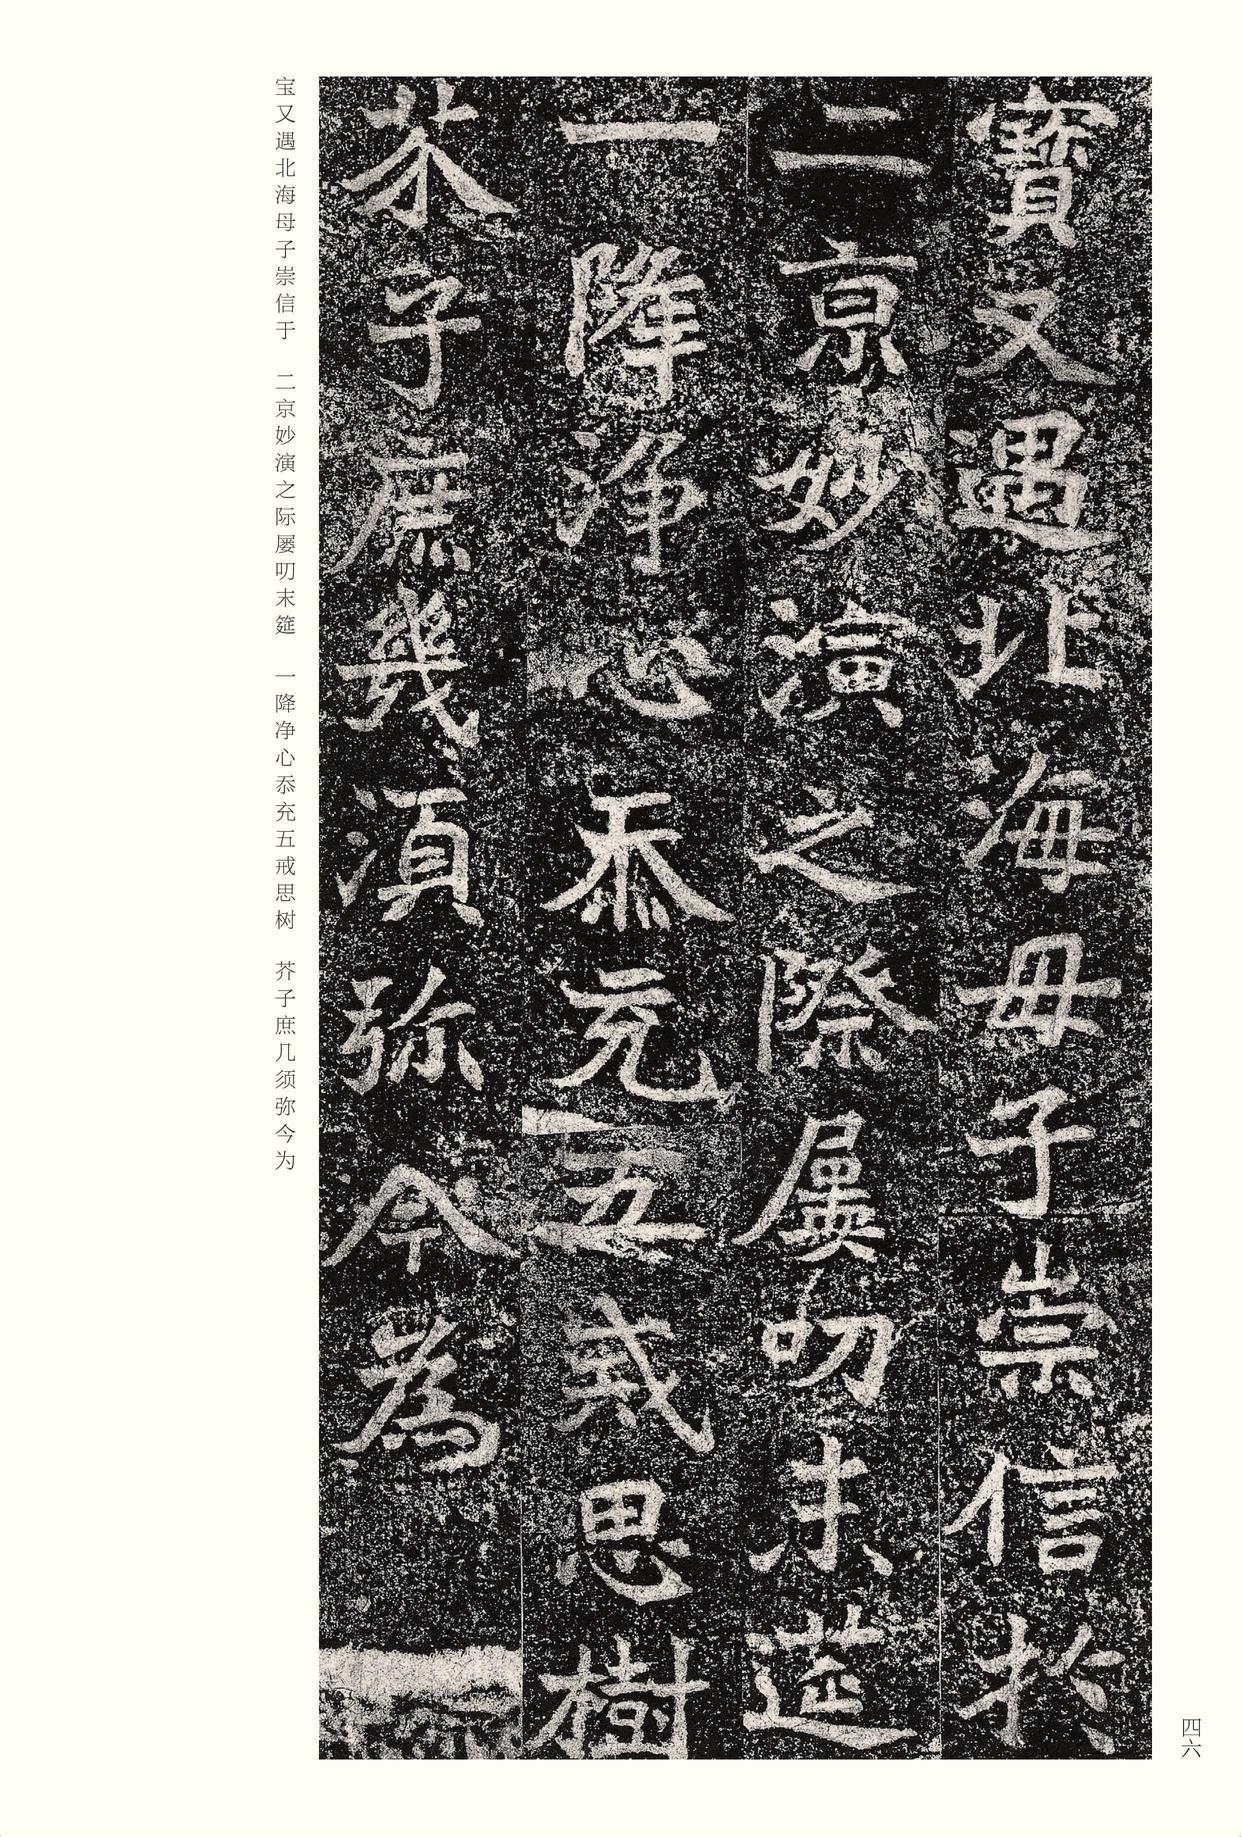 寶又遇北海母子崇信於
二京妙演之際屢叨末莚
一降净心忝充五戒思樹
芥子庶幾湏弥今為
宝又遇北海母子崇信于　二京妙演之际屡叨末筵　一降净心忝充五戒思树　芥子庶几须弥今为
四六